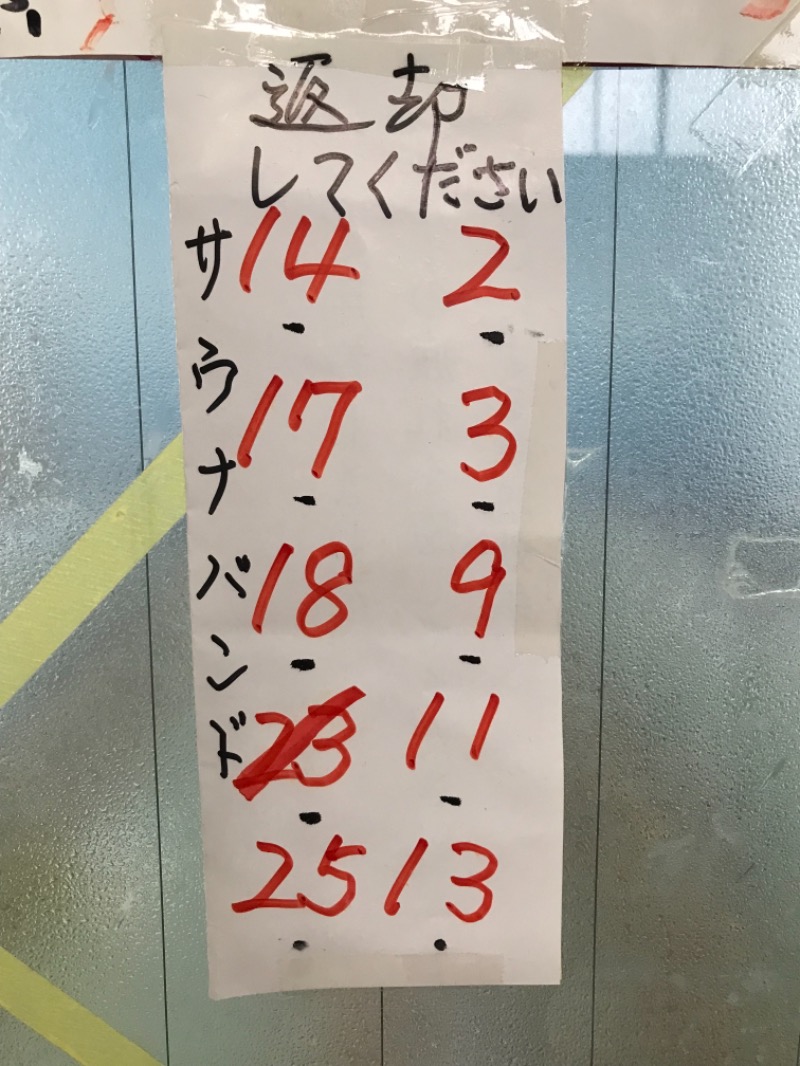 返却
してください
サウナバンド
14・ 2・
17・ 3・
18・ 9・
23・ 11・
25・ 13・